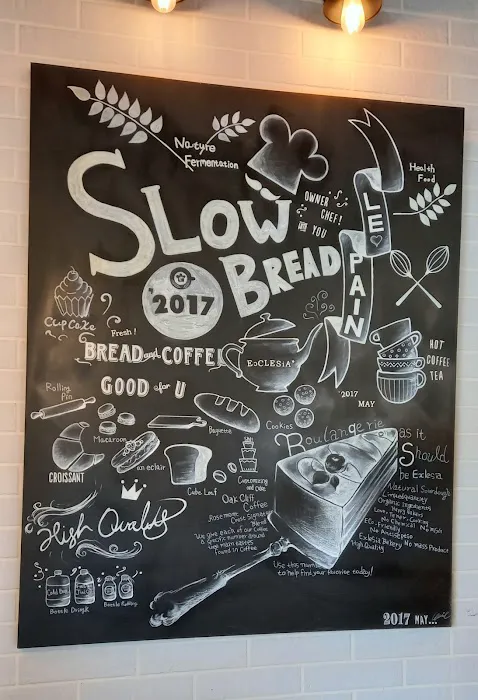 Nature
Fermentation
Health
Food
SLOW
OWNER'S
CHEF!
AND YOU
LE
PAIN
BREAD
'2017
CupCake
Fresh!
BREAD and COFFEE
GOOD for U
EcCLESIA
HOT
COFFEE
TEA
'2017
MAY
Rolling
Pin
Macaroon
Baguette
Cookies
CROISSANT
an eclair
Cube Loaf
Customizing
Boulangerie as it
Should
be Exlesia
Natural Sourdough
Organic Ingredients
No Chemical No Mash
Eco Friendly
Exlesia Bakery No mass Produce
High Quality
High Quality
Oak Cliff
Coffee
Rosemore
Blend
We give each of our Coffee
a specific number around
the main tastes
found in Coffee
Use this
to help find your favorite today!
Cold Brew
Juice
Bottle Drink
2017 MAY...